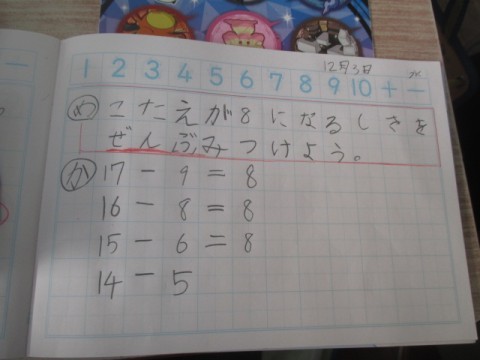 12月3日
1 2 3 4 5 6 7 8 9 10 + −
め こたえが8になるしきを
ぜんぶみつけよう。
か 17 − 9 = 8
16 − 8 = 8
15 − 6 = 8
14 − 5